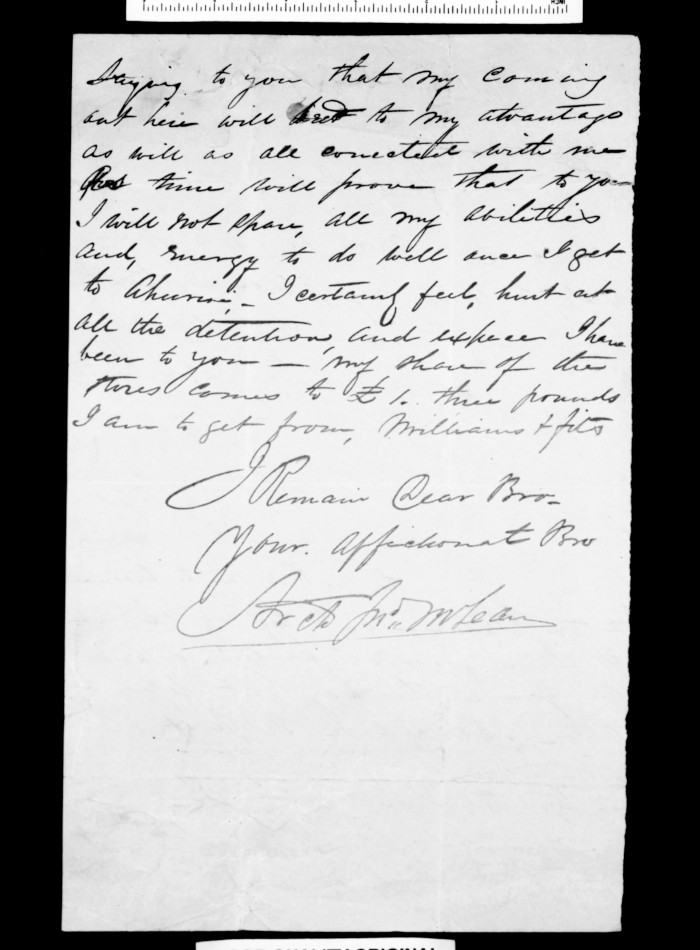 Saying to you that my coming
out here will to my atvantage
as will as all conected with me
time will prove that to you
I will not spare, all my abilities
and, energy to do well once I get
to Ahuriri, - I certainly feel, hurt at
all the detention, and expece I have
been to you — my share of the
stores comes to £ three pounds
I am to get from, Williams &
I Remain Dear Bro-
Your. affichonat Bro
Archd Jno. McLean